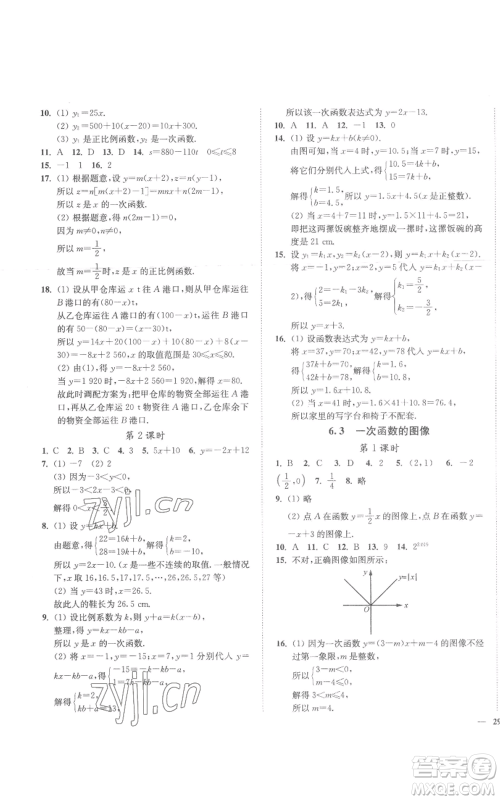 10. (1) y₁=25x.
(2) y₂=500+10(x−20)=10x+300.
(3) y₁是正比例函数, y₂是一次函数.
11. A  12. D  13. D  14. s=880−110t  0≤t≤8
15. −1  1  16. 2
17. (1) 根据题意, 设 y=m(x+2), z=n(y−1),
所以 z=n[m(x+2)−1]=mnx+n(2m−1).
(2) 根据题意, 得 n(2m−1)=0.
因为 n≠0,
所以 m=1/2.
故当 m=1/2 时, z 是 x 的正比例函数.
18. (1) 设从甲仓库运 x t 往 A 港口,
则从甲仓库运往 B 港口的有(80−x)t,
从乙仓库运往 A 港口的有(100−x)t,
运往 B 港口的有 50−(80−x)=(x−30)t,
所以 y=14x+20(100−x)+10(80−x)+8(x−30)=−8x+2 560, x 的取值范围是 30≤x≤80.
(2) 由(1), 得 y=−8x+2 560.
当 y=1 920 时, −8x+2 560=1 920, 解得 x=80.
故此时调配方案是, 把甲仓库的物资全部运往 A 港口, 乙仓库的物资全部运往 B 港口.
第 2 课时
1. C  2. B  3. D  4. 3  5. 5x+10  6. y=−2x+12
7. (1) −7  (2) 2
(3) 因为−3<y<3,
所以−3<2x−3<3,
解得 0<x<3.
8. (1) 设 y=kx+b,
由题意, 得 {22=16k+b, 28=19k+b, 解得 {k=2, b=−10,
所以 y=2x−10. (x 是一些不连续的取值, 一般情况下, x 取 16, 16.5, 17, 17.5, …, 26, 26.5, 27 等)
(2) 当 y=43 时, x=26.5.
故此人的鞋长为 26.5 cm.
9. (1) 设比例系数为 k, 则 y+a=k(x−b),
整理, 得 y=kx−kb−a,
所以 y 是 x 的一次函数.
(2) 将 x=−1, y=−15; x=7, y=1 分别代入 y=kx−kb−a, 得 {−15=−k−kb−a, 1=7k−kb−a,
解得 {k=2, kb+a=13,
所以该一次函数表达式为 y=2x−13.
10. A  11. A  12. −1  13. 0
14. (1) 设 y=kx+b(k≠0).
由图可知, 当 x=4 时, y=10.5; 当 x=7 时, y=15,
将它们分别代入上式, 得 {10.5=4k+b, 15=7k+b,
解得 {k=1.5, b=4.5, 所以 y=1.5x+4.5(x 是正整数).
(2) 当 x=4+7=11 时, y=1.5×11+4.5=21.
即把两摞饭碗整齐地摆成一摞时, 这摞饭碗的高度是 21 cm.
15. 设 y₁=k₁x, y₂=k₂(x−2), 则 y=k₁x+k₂(x−2).
将 x=−1, y=2; x=2, y=5 分别代入上式,
得 {2=−k₁−3k₂, 5=2k₁, 解得 {k₁=5/2, k₂=−3/2,
16. (1) 设函数表达式为 y=kx+b.
将 x=37, y=70; x=42, y=78 代入 y=kx+b, 得
{37k+b=70, 42k+b=78, 解得 {k=1.6, b=10.8,
所以 y=1.6x+10.8.
(2) 当 x=41 时, y=1.6×41+10.8=76.4,
所以家里的写字台和椅子不配套.
6.3  一次函数的图像
第 1 课时
1. B  2. C  3. D  4. A  5. (2, 1)  6. −2
(1/2, 0)  7. 1/4  8. 略
9. (1) 略
(2) 点 A 在函数的图像上, 点 B 不在函数的图像上.
10. A  11. B  12. B  13. 9
15. 不对, 正确图像如图所示:
y
y=|x|
O
x
16. (1) 因为一次函数 y=(3−m)x+m−4 的图像不经过第二象限, 所以 {3−m>0, m−4≤0,
zyjl.cn
— 25